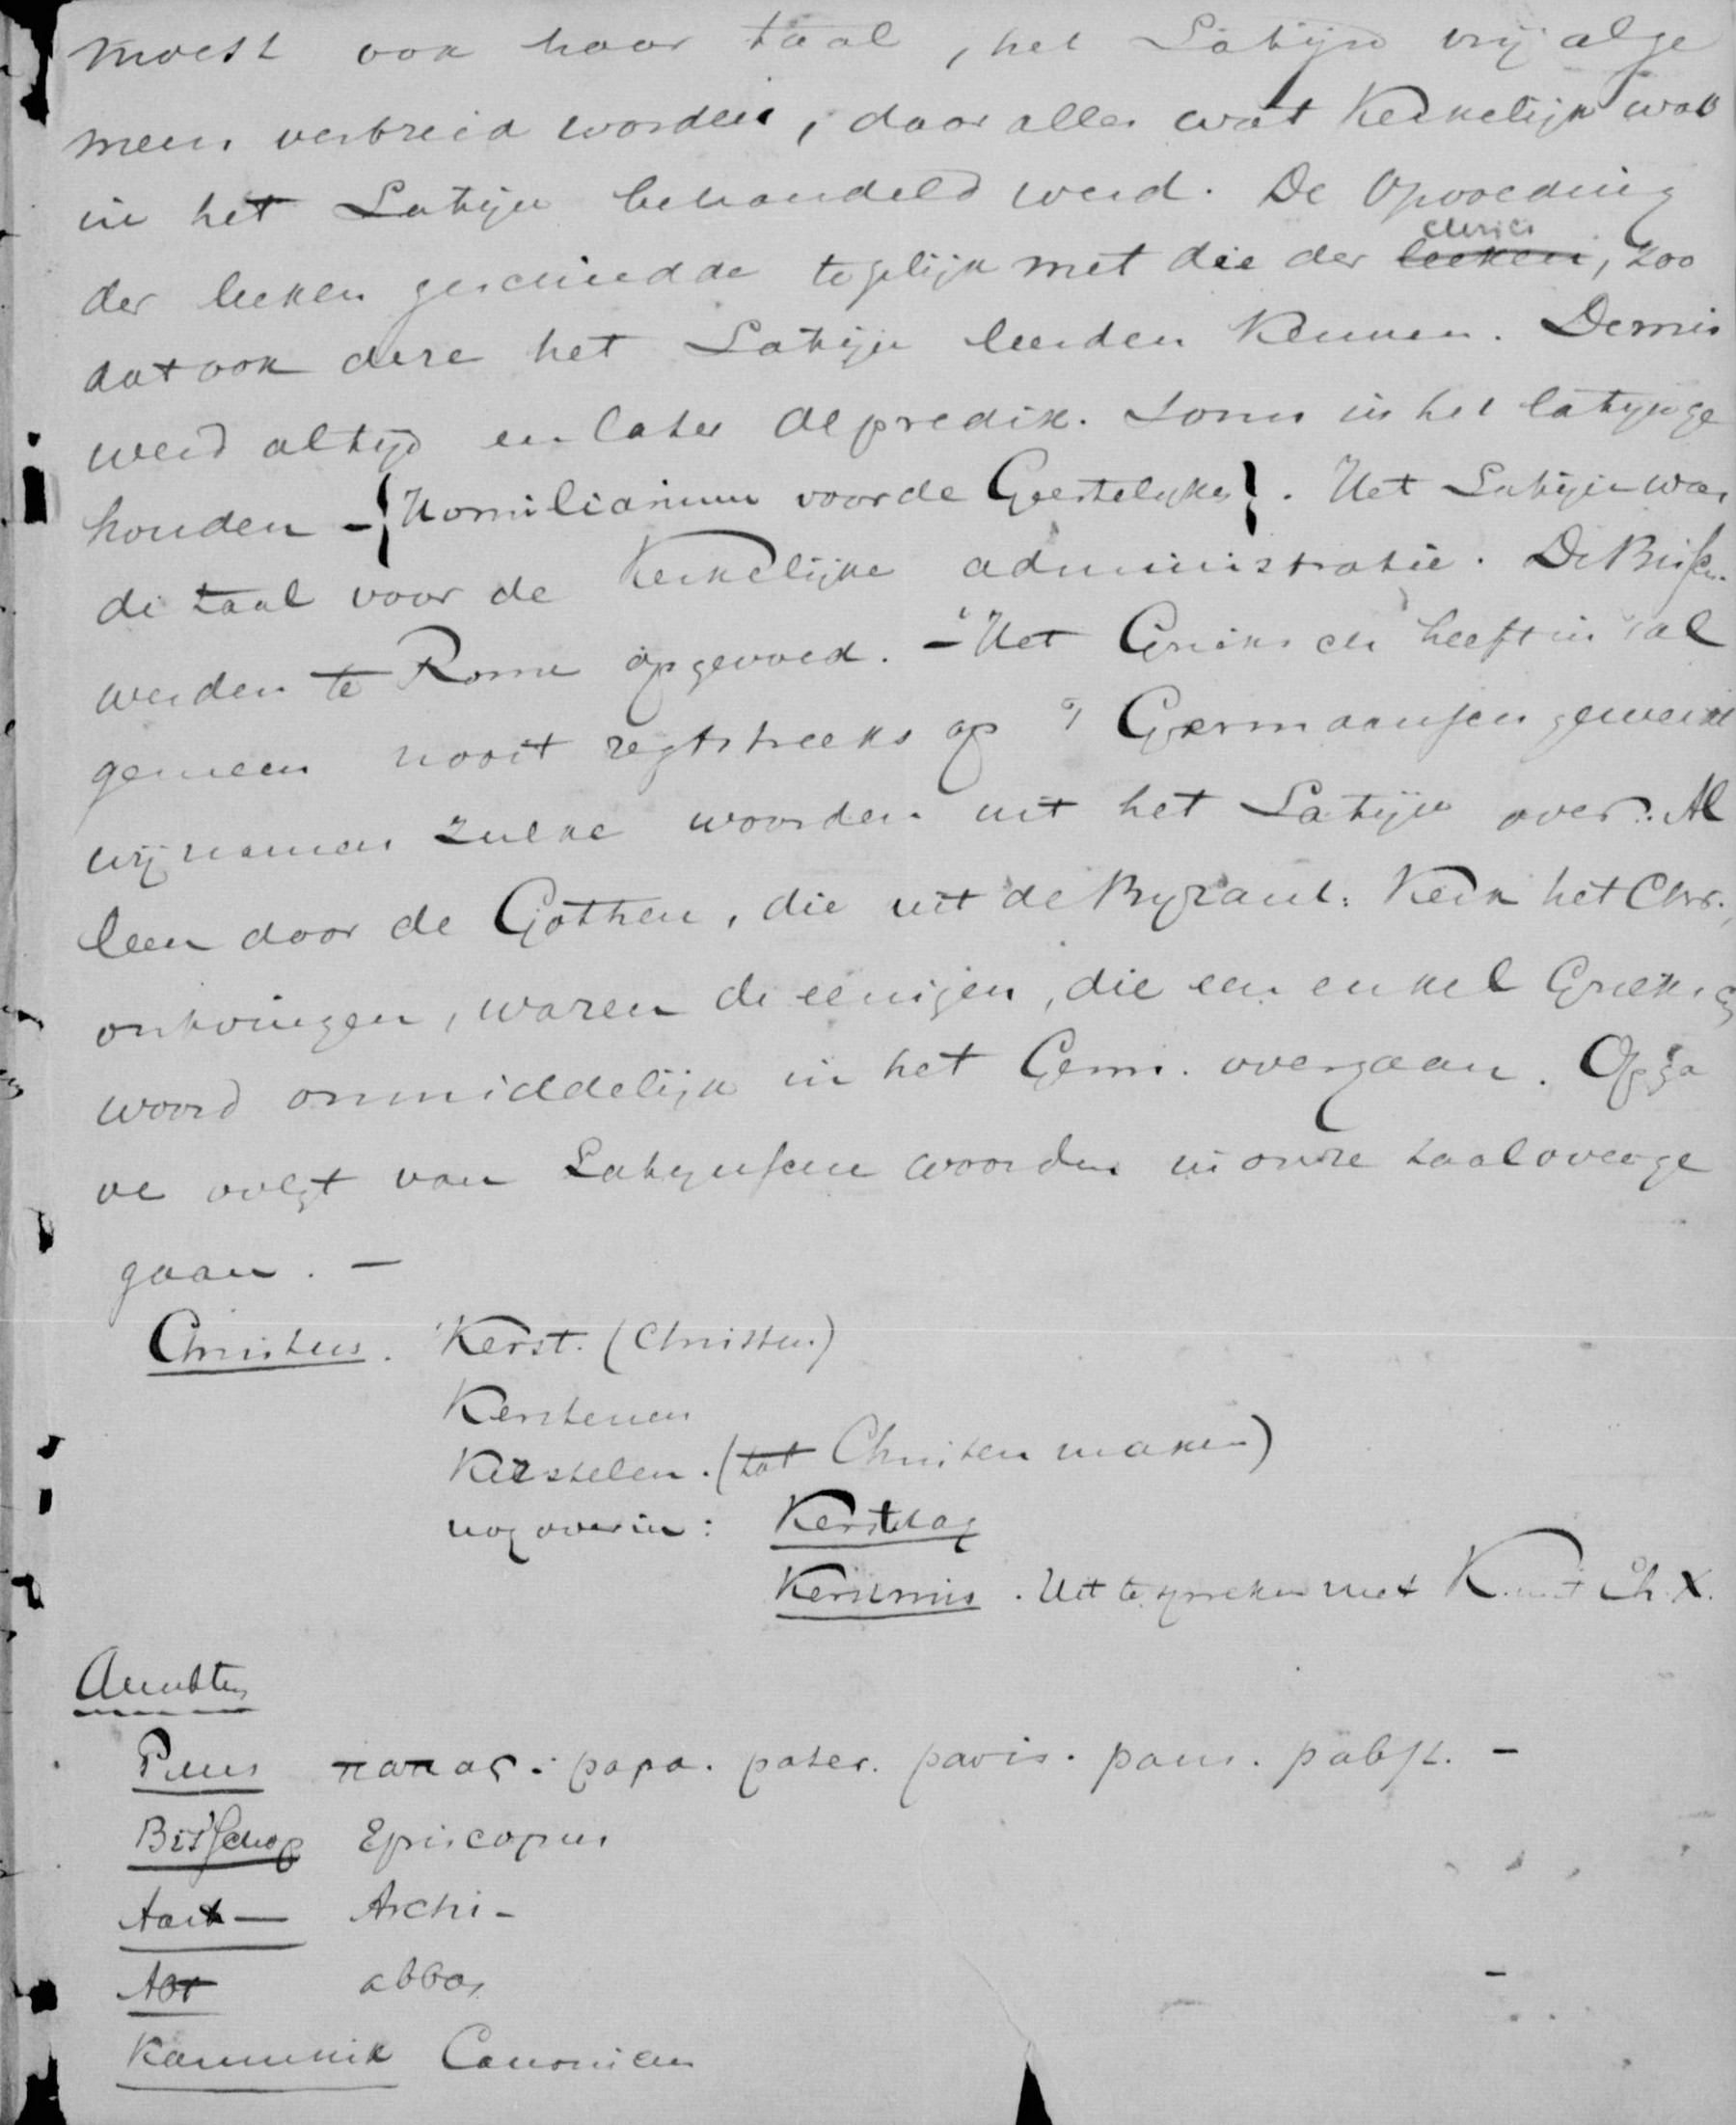 moest ook haar taal, het Latijn vrij alge
meen verbreid worden, daar alles wat Kerkelijk was
in het Latijn behandeld werd. De Opvoeding
der leeken geschiedde tegelijk met die der ~~leeken~~ clerici, zoo
dat ook deze het Latijn leerden kennen. De mis
werd altijd en later de predik. soms in het latijn ge
houden – {Homiliarium voor de Geestelijke}. Het Latijn was
de taal voor de Kerkelijke administratie. De Bissch.
werden te Rome opgevoed. – Het Grieksch heeft in 't al
gemeen nooit regtstreeks op 't Germaansch gewerkt
wij namen zulke woorden uit het Latijn over. Al
leen door de Gothen, die uit de Byzant. Kerk het Chr.
ontvingen, waren de eenigen, die een enkel Grieksch
woord onmiddelijk in het Germ. overgaan. Opga
ve volgt van Latijnsche woorden in onze taal overge
gaan. –
Christus. Kerst. (Christen)
Kerstenen
Kerstelen. (tot Christen maken)
nog over in: Kerstdag
Kersmis. Uit te spreken met K. niet Ch. X.
Ambten
Paus παπας. papa. pater. pavis. paus. pabst. –
Bisschop Episcopus
Aarts— Archi-
Abt abbas
Kanunnik Canonicus